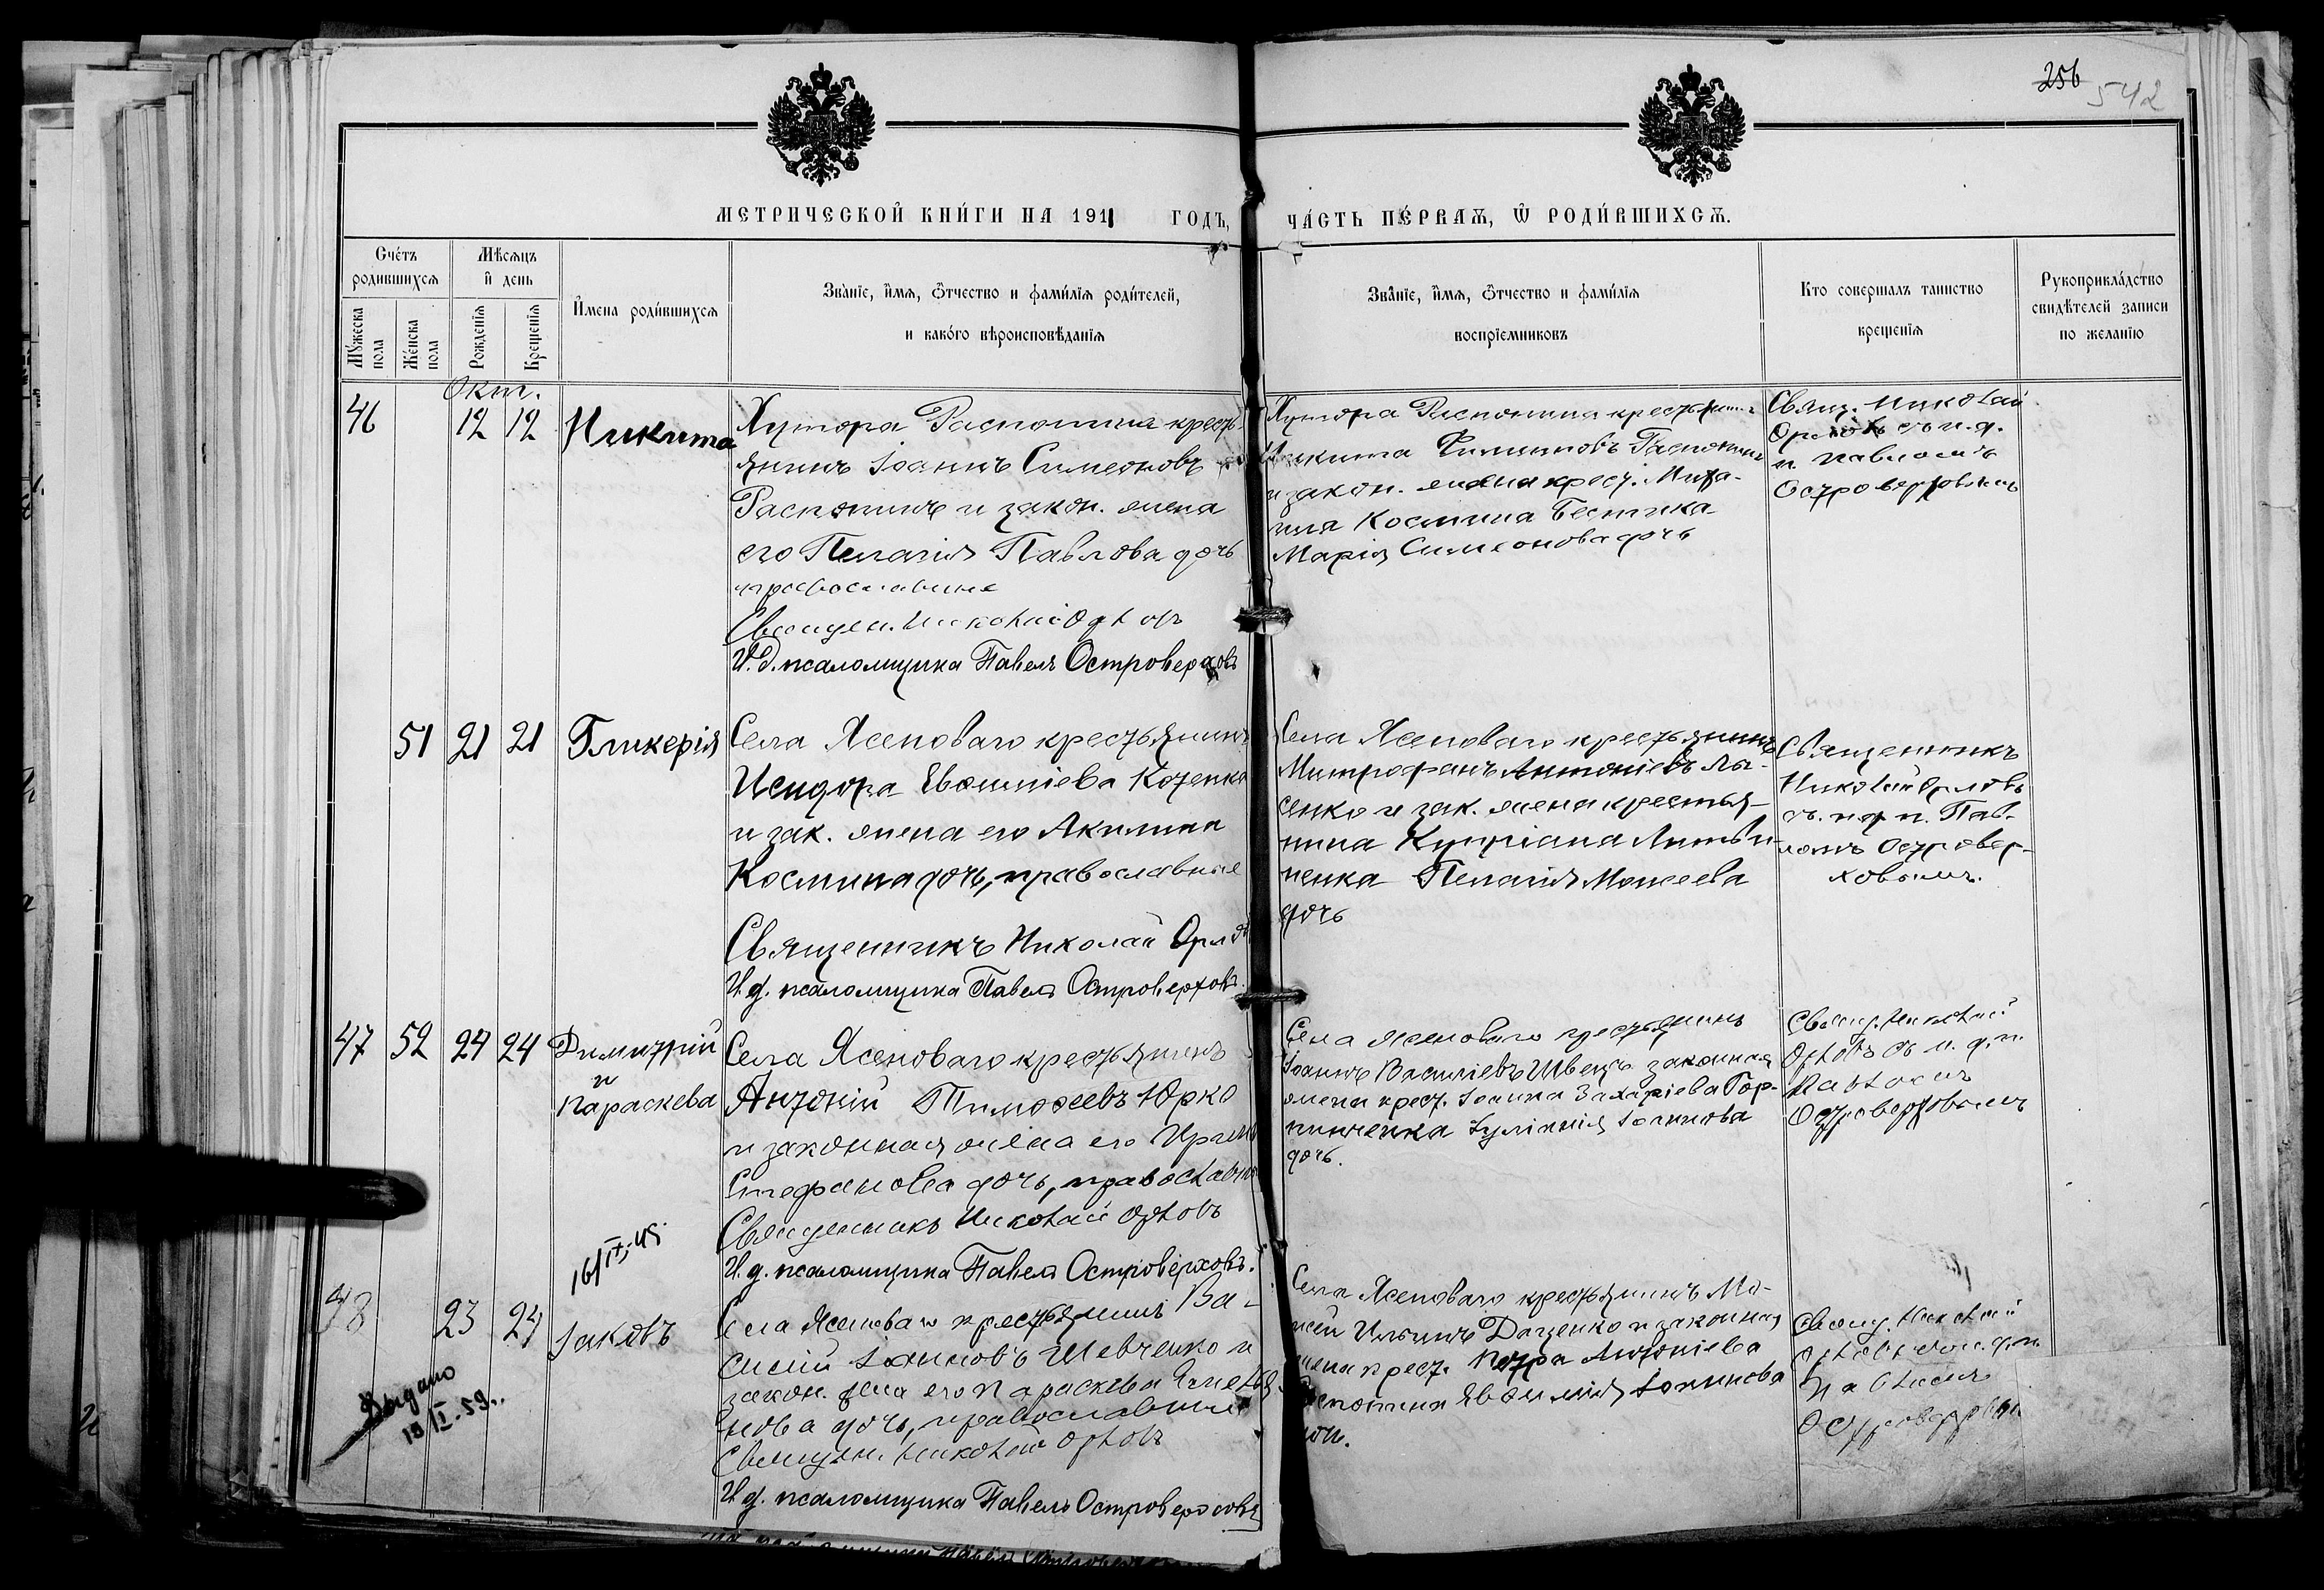 256
542
МЕТРИЧЕСКОЙ КНИ́ГИ НА 1911 ГОДЪ,
ЧА́СТЬ ПЕ́РВАѦ, Ѡ҆ РОДИ́ВШИХСѦ.
Сче́тъ родившихсѧ
Мѣ́сѧцъ и҆ день
И҆мена роди́вшихсѧ
Зва́нїе, и҆́мѧ, ѻ҆́тчество и фами́лїѧ роди́телей,
и како́го вѣроисповѣ́данїѧ
Зва́нїе, и҆́мѧ, ѻ҆́тчество и фами́лїѧ
воспрїемниковъ
Кто совершалъ таинство
крещенїѧ
Рукоприкла́дство
свидѣ́телей записи
по желанїю
Мꙋ́жеска пола
Же́нска пола
Рожденїѧ
Крещенїѧ
Окт.
46 12 12 Никита
Хутора Распопина кресть-
янинъ Іоаннъ Симеоновъ
Распопинъ и закон. жена
его Пелагія Павлова дочь
православные
Священ. Николай Орловъ
И. д. псаломщика Павелъ Островерховъ
Хутора Распопина крестьянинъ
Никита Распопинъ
и закон. жена крест. Миха-
ила Космина
Марія Симеонова дочь
Свящ. Николай
Орловъ съ и. д.
п. Павломъ
Островерховымъ
51 21 21 Гликерія
Села Ясеноваго крестьянинъ
Исидора Евѳиміева
и зак. жена его Акилина
Космина дочь, православные
Священникъ Николай Орловъ
И. д. псаломщика Павелъ Островерховъ.
Села Ясеноваго крестьянинъ
Митрофанъ Антоніевъ Лы-
сенко и зак. жена крестья-
нина Кипріана Литви-
ненка Пелагія Моисеева
дочь
Священникъ
Николай Орловъ
съ и. д. п. Пав-
ломъ Островер-
ховымъ.
47 52 24 24 Димитрій
и
Параскева
Села Ясеноваго крестьянинъ
Антоній Тимоѳеевъ Юрко
и законная жена его Ирина
Стефанова дочь, православные
Священникъ Николай Орловъ
И. д. псаломщика Павелъ Островерховъ.
Села Ясеноваго крестьянинъ
Іоаннъ Василіевъ Швецъ законная
жена крест. Іоанна Захаріева Гор-
пинченка Іуліанія Іоаннова
дочь.
Свящ. Николай
Орловъ съ и. д. п.
Павломъ
Островерховымъ
16/IX-45
48 23 24 Іаковъ
Выдано
19/I-59.
Села Ясеноваго крестьянинъ Ва-
силій Іоанновъ Шевченко и
закон. жена его Параскева
нова дочь, православные
Священ. Николай Орловъ
И. д. псаломщика Павелъ Островерховъ
Села Ясеноваго крестьянинъ Мо-
исей Ильинъ Даценко и законная
жена крест. Петра Антоніева
Распопина Евѳимія Іоаннова
дочь.
Свящ. Николай
Орловъ съ и. д. п.
Павломъ
Островерховымъ